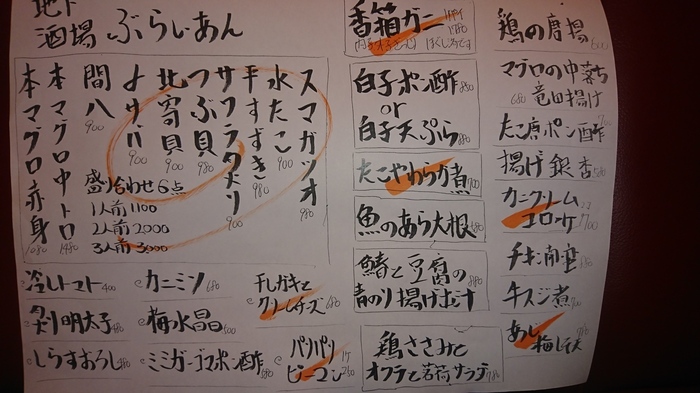 地下
酒場 ぶらいあん
スマガツオ 980
水たこ 900
平すずき 980
サワラタタキ 900
つぶ貝 980
北寄貝 900
よサバ 900
間八 900
本マグロ中トロ 1480
本マグロ赤身 1080
盛り合わせ6点
1人前 1100
2人前 2,000
3人前 3,000
冷しトマト 400
炙り明太子 480
しらすおろし
カニミソ 680
梅水晶 500
ミミガーゴマポン酢
干しガキと
クリームチーズ 680
パリパリ
ピーマン
香箱ガニ
白子ポン酢 880
or
白子天ぷら 880
たこやわらか煮 700
魚のあら大根
鯖と豆腐の
青のり揚げ出汁
鶏ささみと
オクラと茗荷サラダ
鶏の唐揚
マグロの中落ち
680 竜田揚げ
たこ唐ポン酢
揚げ銀杏
カニクリーム
コロッケ
チキン南蛮
牛スジ煮 700